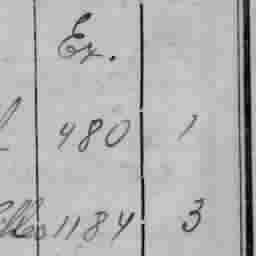 Ex.
480 1
1184 3